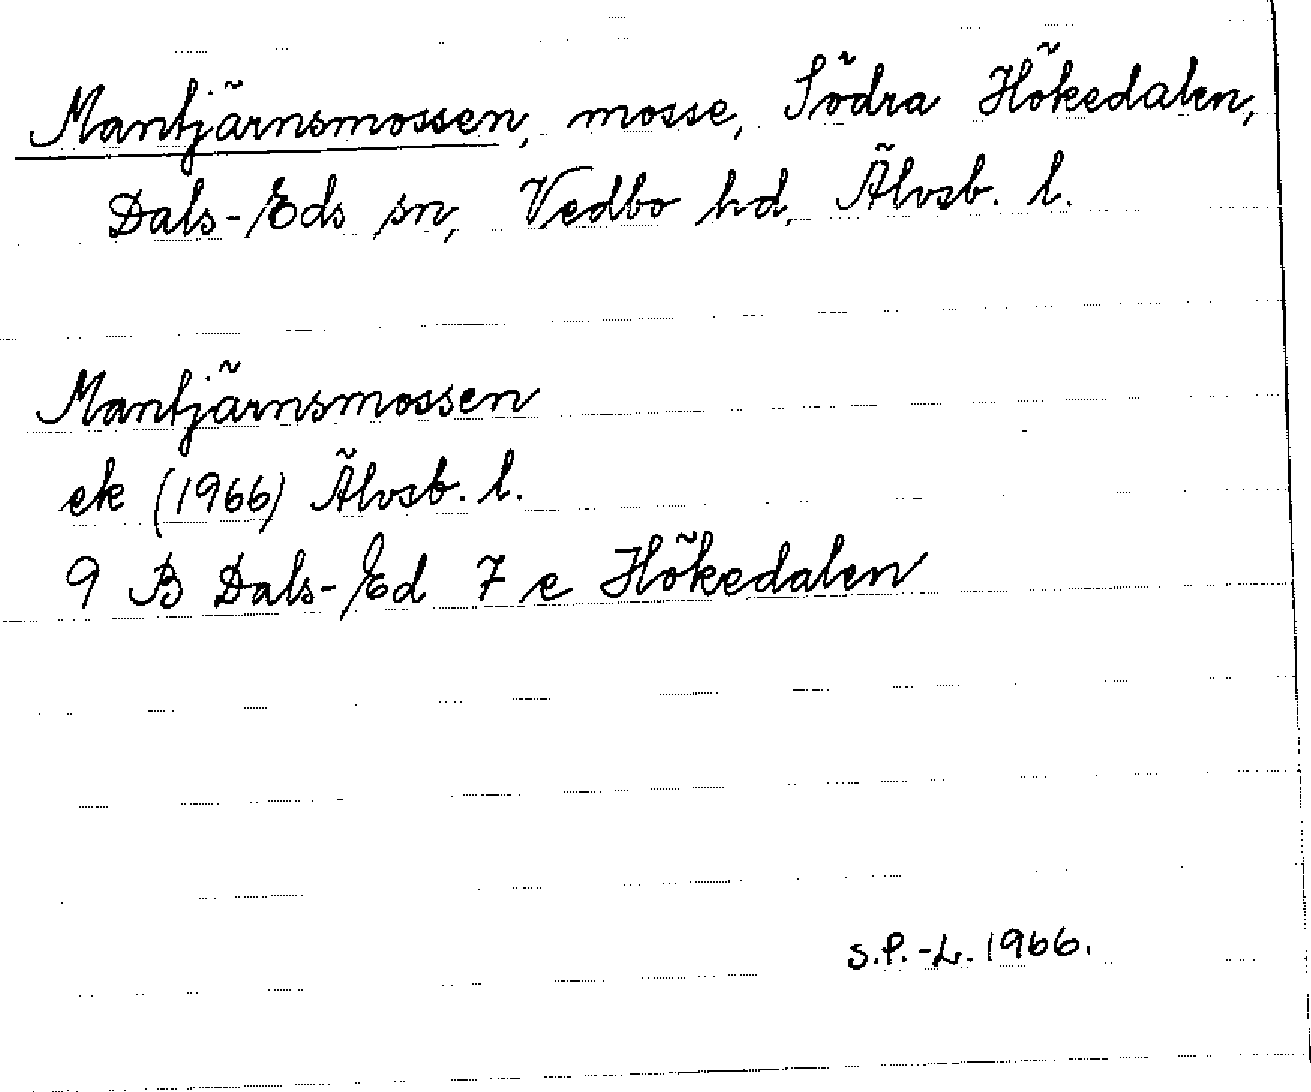 Mantjärnsmossen, mosse, Södra Hökedalen,
Dals-Eds sn, Vedbo hd, Älvsb. l.
Mantjärnsmossen
ek (1966) Älvsb. l.
9 B Dals-Ed 7 e Hökedalen
S.P.-L. 1966.